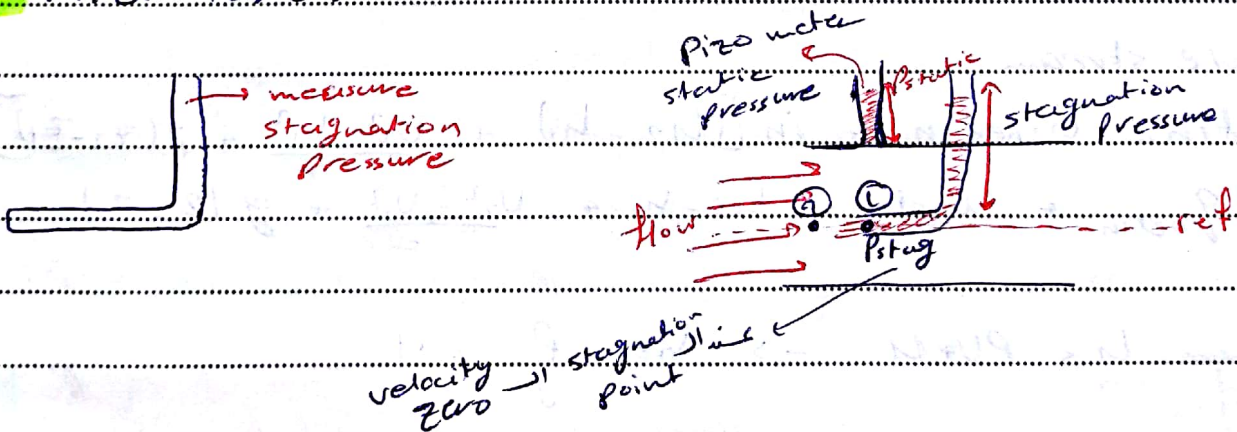 measure
stagnation
pressure
Pizo meter
static
pressure
Pstatic
stagnation
pressure
flow
1
Pstag
ref
عند الـ stagnation
point
الـ velocity
zero